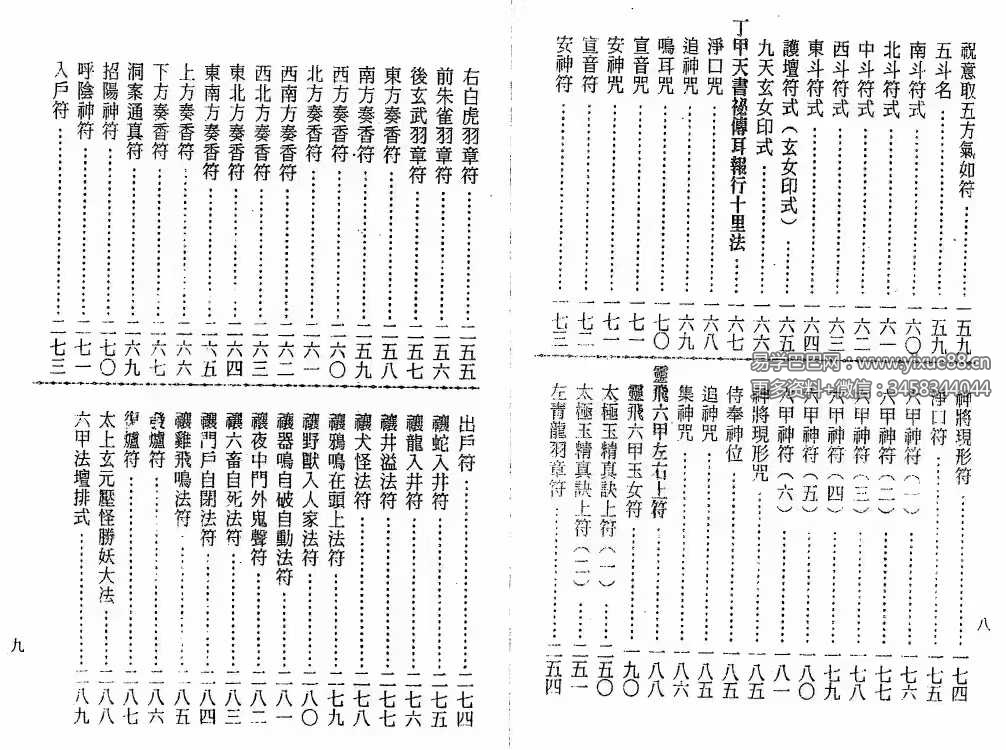 祝意取五方氣如符……一五九
五斗名……一五九
南斗符式……一六〇
北斗符式……一六一
中斗符式……一六二
西斗符式……一六三
東斗符式……一六四
護壇符式（玄女印式）……一六五
九天玄女印式……一六六
丁甲天書祕傳耳報行十里法……一六七
淨口咒……一六八
追神咒……一六九
鳴耳咒……一七〇
宣音咒……一七一
安神咒……一七一
宣音符……一七二
安神符……一七三
神將現形符……一七四
淨口符……一七五
六甲神符（一）……一七六
六甲神符（二）……一七七
六甲神符（三）……一七八
六甲神符（四）……一七九
六甲神符（五）……一八〇
六甲神符（六）……一八一
神將現形咒……一八五
侍奉神位……一八五
追神咒……一八五
集神咒……一八六
靈飛六甲左右上符……一八八
靈飛六甲玉女符……一九〇
太極玉精真訣上符（一）……二五〇
太極玉精真訣上符（二）……二五一
左青龍羽章符……二五四
八
右白虎羽章符……二五五
前朱雀羽章符……二五六
後玄武羽章符……二五七
東方奏香符……二五八
南方奏香符……二五九
西方奏香符……二六〇
北方奏香符……二六一
西南方奏香符……二六二
西北方奏香符……二六三
東北方奏香符……二六四
東南方奏香符……二六五
上方奏香符……二六六
下方奏香符……二六七
洞案通真符……二六九
招陽神符……二七〇
呼陰神符……二七一
入戶符……二七三
出戶符……二七四
禳蛇入井符……二七五
禳龍入井符……二七六
禳井溢法符……二七七
禳犬怪法符……二七八
禳鴉鳴在頭上法符……二七九
禳野獸入人家法符……二八〇
禳器鳴自破自動法符……二八一
禳夜中門外鬼聲符……二八二
禳六畜自死法符……二八三
禳門戶自閉法符……二八四
禳雞飛鳴法符……二八五
發爐符……二八六
復爐符……二八七
太上玄元壓怪勝妖大法……二八八
六甲法壇排式……二八九
九
易学巴巴网：www.yixuc88.cn
更多资料+微信：3458344044